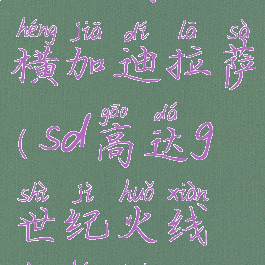 héng jiā dí lā sà
横加迪拉萨
gāo dá
(sd高达g
shì jì huǒ xiàn
世纪火线